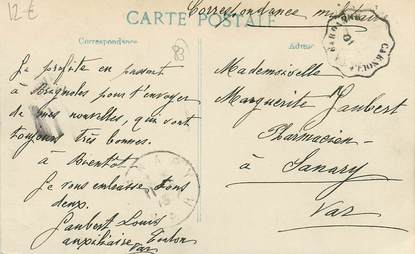 12€
Correspondance militaire
CARTE POSTALE
Correspondance
83
Je profite en passant
à Brignoles pour t'envoyer
de mes nouvelles, qui sont
toujours très bonnes.
à Bientôt
Je vous embrasse tous
deux.
Jaubert Louis
auxiliaire Toulon
Var
Adresse
Mademoiselle
Marguerite Jaubert
Pharmacien
à
Sanary
Var